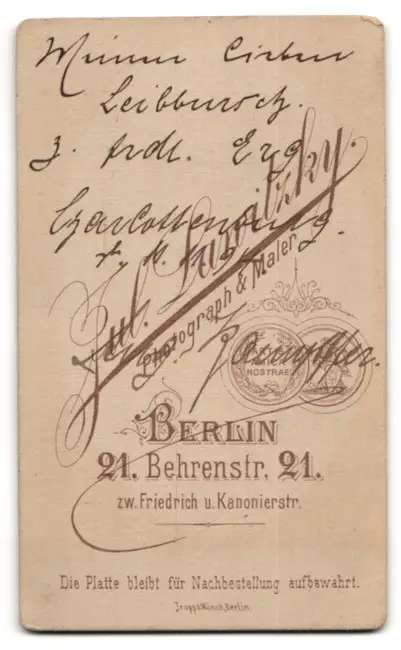 Meinem lieben
Leibbursch.
z. frdl. Erg
Charlottenburg.
Jul. Sawitzky.
Photograph & Maler
NOSTRAE
BERLIN
21. Behrenstr. 21.
zw. Friedrich u. Kanonierstr.
Die Platte bleibt für Nachbestellung aufbewahrt.
Trapp&Münch, Berlin.